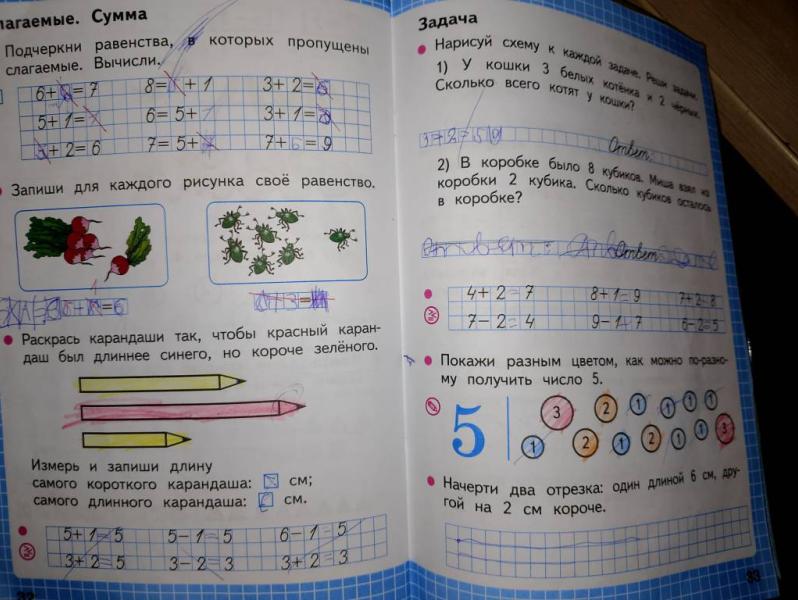 лагаемые. Сумма
Подчеркни равенства, в которых пропущены
слагаемые. Вычисли.
6+ = 7 8= + 1 3+ 2=
5+ 1= 6= 5+ 3+ 1=
+ 2= 6 7= 5+ 7+ 6= 9
Запиши для каждого рисунка своё равенство.
=6
Раскрась карандаши так, чтобы красный каран-
даш был длиннее синего, но короче зелёного.
Измерь и запиши длину
самого короткого карандаша: см;
самого длинного карандаша: см.
5+ 1=5 5- 1=5 6- 1=5
3+ 2=5 3- 2=3 3+ 2=3
32
Задача
Нарисуй схему к каждой задаче. Реши задачи.
1) У кошки 3 белых котёнка и 2 чёрных.
Сколько всего котят у кошки?
3+2=5 Ответ:
2) В коробке было 8 кубиков. Миша взял из
коробки 2 кубика. Сколько кубиков осталось
в коробке?
Ответ:
4+ 2=7 8+ 1=9 7+ 2=8
7- 2=4 9- 1=7 6- 2=5
Покажи разным цветом, как можно по-разно-
му получить число 5.
5 3 2 1 1 1 1
1 2 1 2 1 1 3
Начерти два отрезка: один длиной 6 см, дру-
гой на 2 см короче.
33